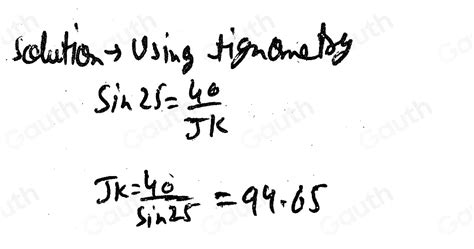 Solution → Using tignometry
Sin 25 = 40/JK
JK = 40/sin25 = 94.65